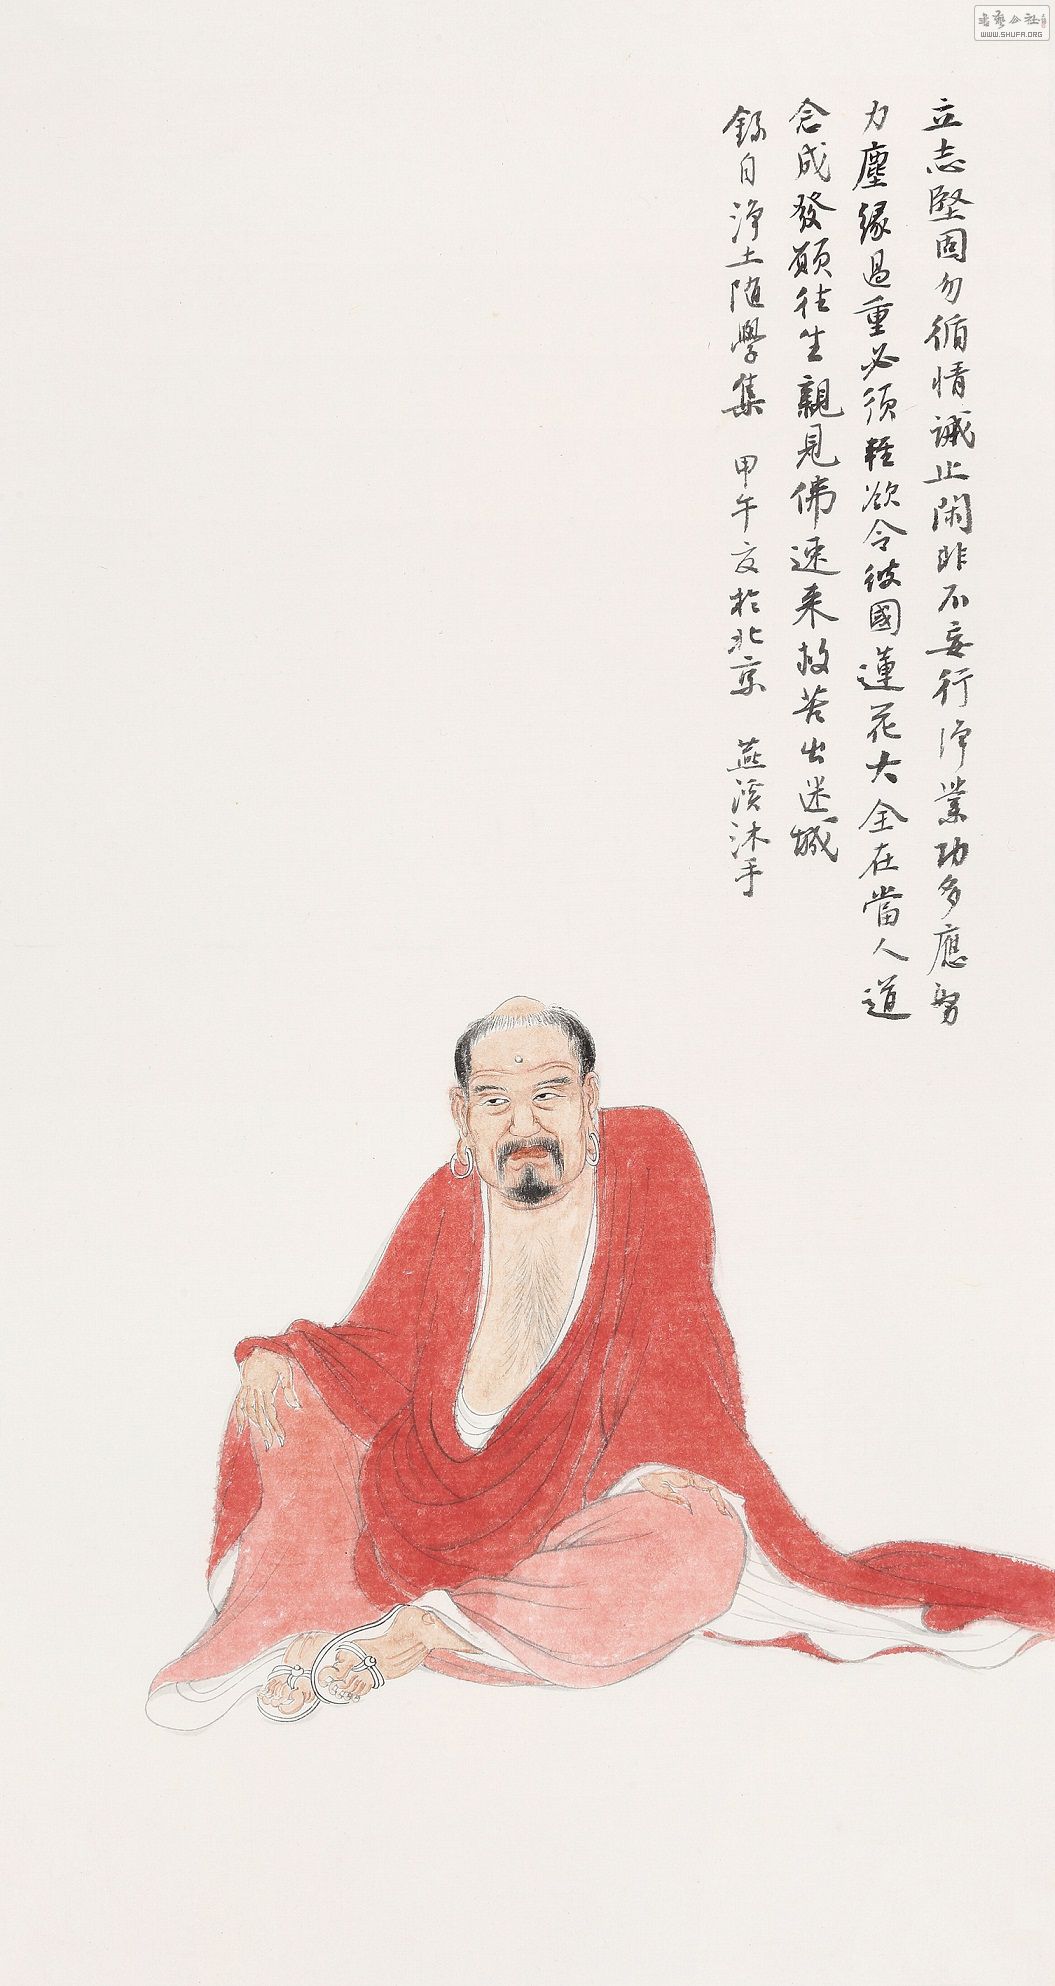 立志堅固勿循情誡止閑非不妄行淨業功多應努
力塵緣過重必須輕欲令彼國蓮花大全在當人道
念成發願往生親見佛速来救苦出迷城
録自淨土随學集 甲午夏於北京 燕溪沐手
書藝公社
WWW.SHUFA.ORG